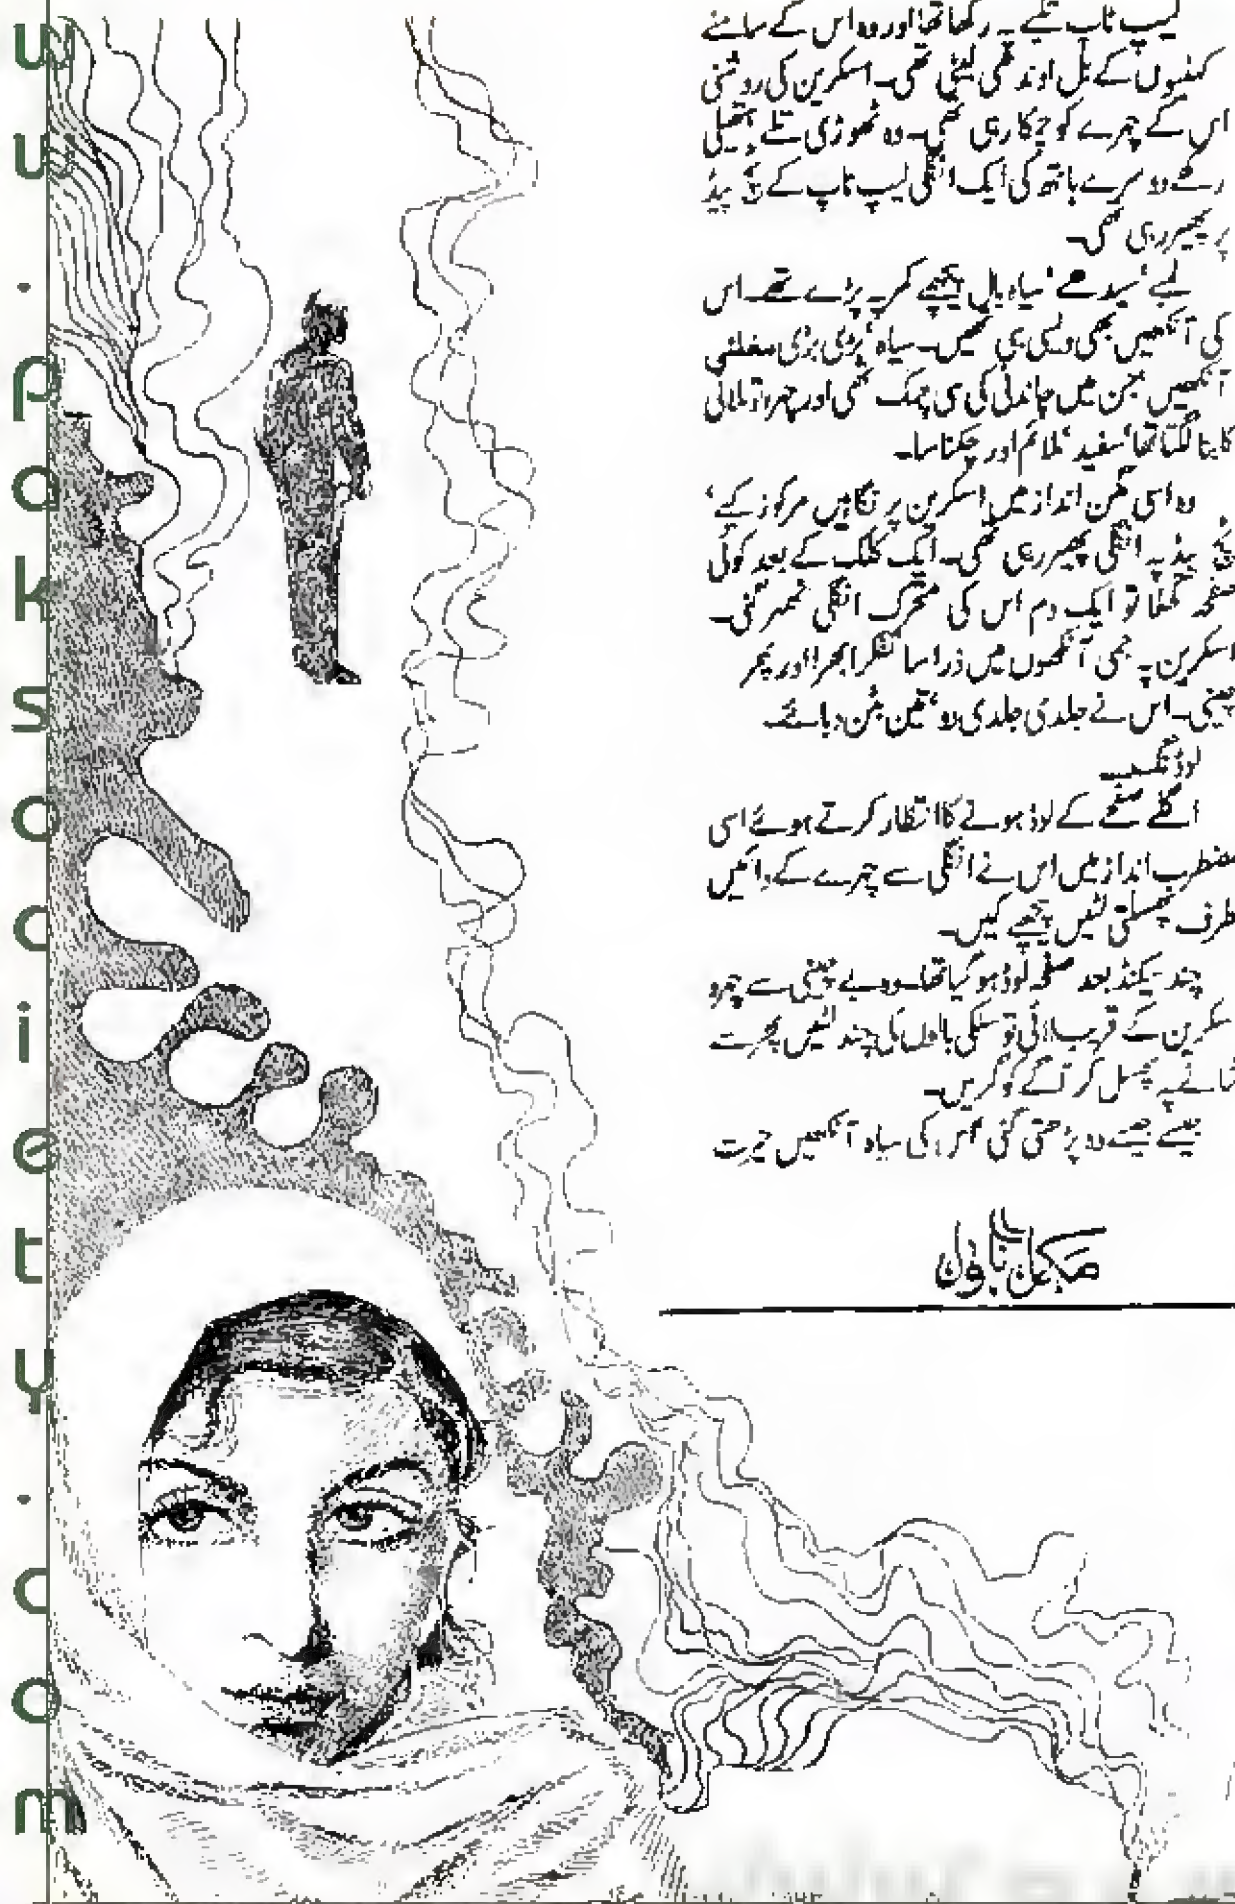 لیپ ٹاپ تکیے پہ رکھا تھا اور وہ اس کے سامنے
کہنیوں کے بل اوندھی لیٹی تھی۔ اسکرین کی روشنی
اس کے چہرے کو چمکا رہی تھی۔ وہ ٹھوڑی تلے ہتھیلی
رکھے دوسرے ہاتھ کی ایک انگلی لیپ ٹاپ کے ٹچ پیڈ
پر پھیر رہی تھی۔
لمبے‘ سیدھے‘ سیاہ بال پیچھے کمر پہ پڑے تھے۔ اس
کی آنکھیں بھی ویسی ہی تھیں۔ سیاہ‘ بڑی بڑی
آنکھیں جن میں چاندنی کی سی چمک تھی اور چہرہ تو ملائی
کا بنا لگتا تھا‘ سفید‘ ملائم اور چکنا سا۔
وہ اسی مگن انداز میں اسکرین پر نگاہیں مرکوز کیے‘
ٹچ پیڈ پہ انگلی پھیر رہی تھی۔ ایک کلک کے بعد کوئی
صفحہ کھلا تو ایک دم اس کی متحرک انگلی ٹھہر گئی۔
اسکرین پہ جمی آنکھوں میں ذرا سا تفکر ابھرا اور پھر
چینی۔ اس نے جلدی جلدی دو‘ تین بٹن دبائے۔
لوڈنگ۔۔۔
اگلے صفحے کے لوڈ ہونے کا انتظار کرتے ہوئے اسی
مضطرب انداز میں اس نے انگلی سے چہرے کے دائیں
طرف پھسلتی لٹیں پیچھے کیں۔
چند سیکنڈ بعد صفحہ لوڈ ہو گیا تھا۔ وہ بے چینی سے چہرہ
سکرین کے قریب لائی تو سلکی بالوں کی چند لٹیں پھر سے
شانے پہ پھسل کر آگے کو گریں۔
جیسے جیسے وہ پڑھتی گئی‘ اس کی سیاہ آنکھیں حیرت
مکمل ناول
w
w
.
p
a
k
s
o
c
i
e
t
y
.
c
o
m